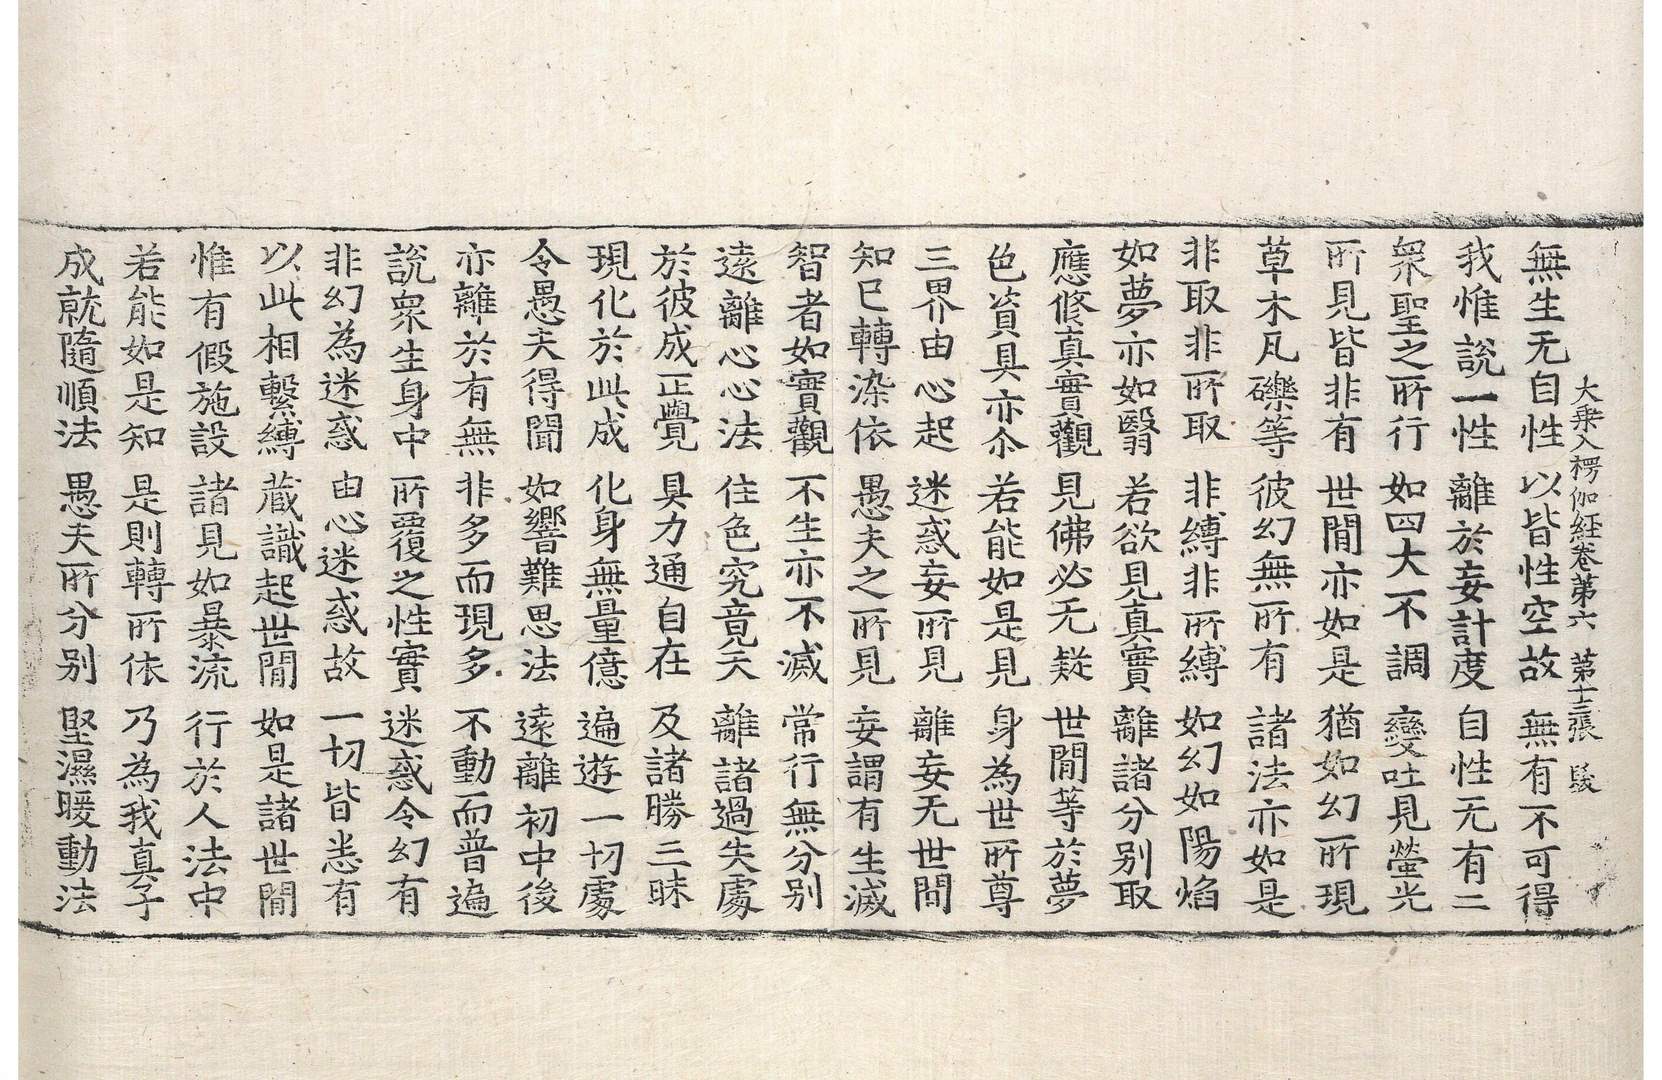 大乗入楞伽経巻第六 第十三張 髮
無生无自性 以皆性空故 無有不可得
我惟說一性 離於妄計度 自性无有二
衆聖之所行 如四大不調 變吐見螢光
所見皆非有 世間亦如是 猶如幻所現
草木瓦礫等 彼幻無所有 諸法亦如是
非取非所取 非縛非所縛 如幻如陽焰
如夢亦如翳 若欲見真實 離諸分别取
應修真實觀 見佛必无疑 世間等於夢
色資具亦尒 若能如是見 身為世所尊
三界由心起 迷惑妄所見 離妄无世間
知已轉染依 愚夫之所見 妄謂有生滅
智者如實觀 不生亦不滅 常行無分别
遠離心心法 住色究竟天 離諸過失處
於彼成正覺 具力通自在 及諸勝三昧
現化於此成 化身無量億 遍遊一切處
令愚夫得聞 如響難思法 遠離初中後
亦離於有無 非多而現多 不動而普遍
說衆生身中 所覆之性實 迷惑令幻有
非幻為迷惑 由心迷惑故 一切皆悉有
以此相繫縛 藏識起世間 如是諸世間
惟有假施設 諸見如暴流 行於人法中
若能如是知 是則轉所依 乃為我真子
成就隨順法 愚夫所分别 堅濕暖動法